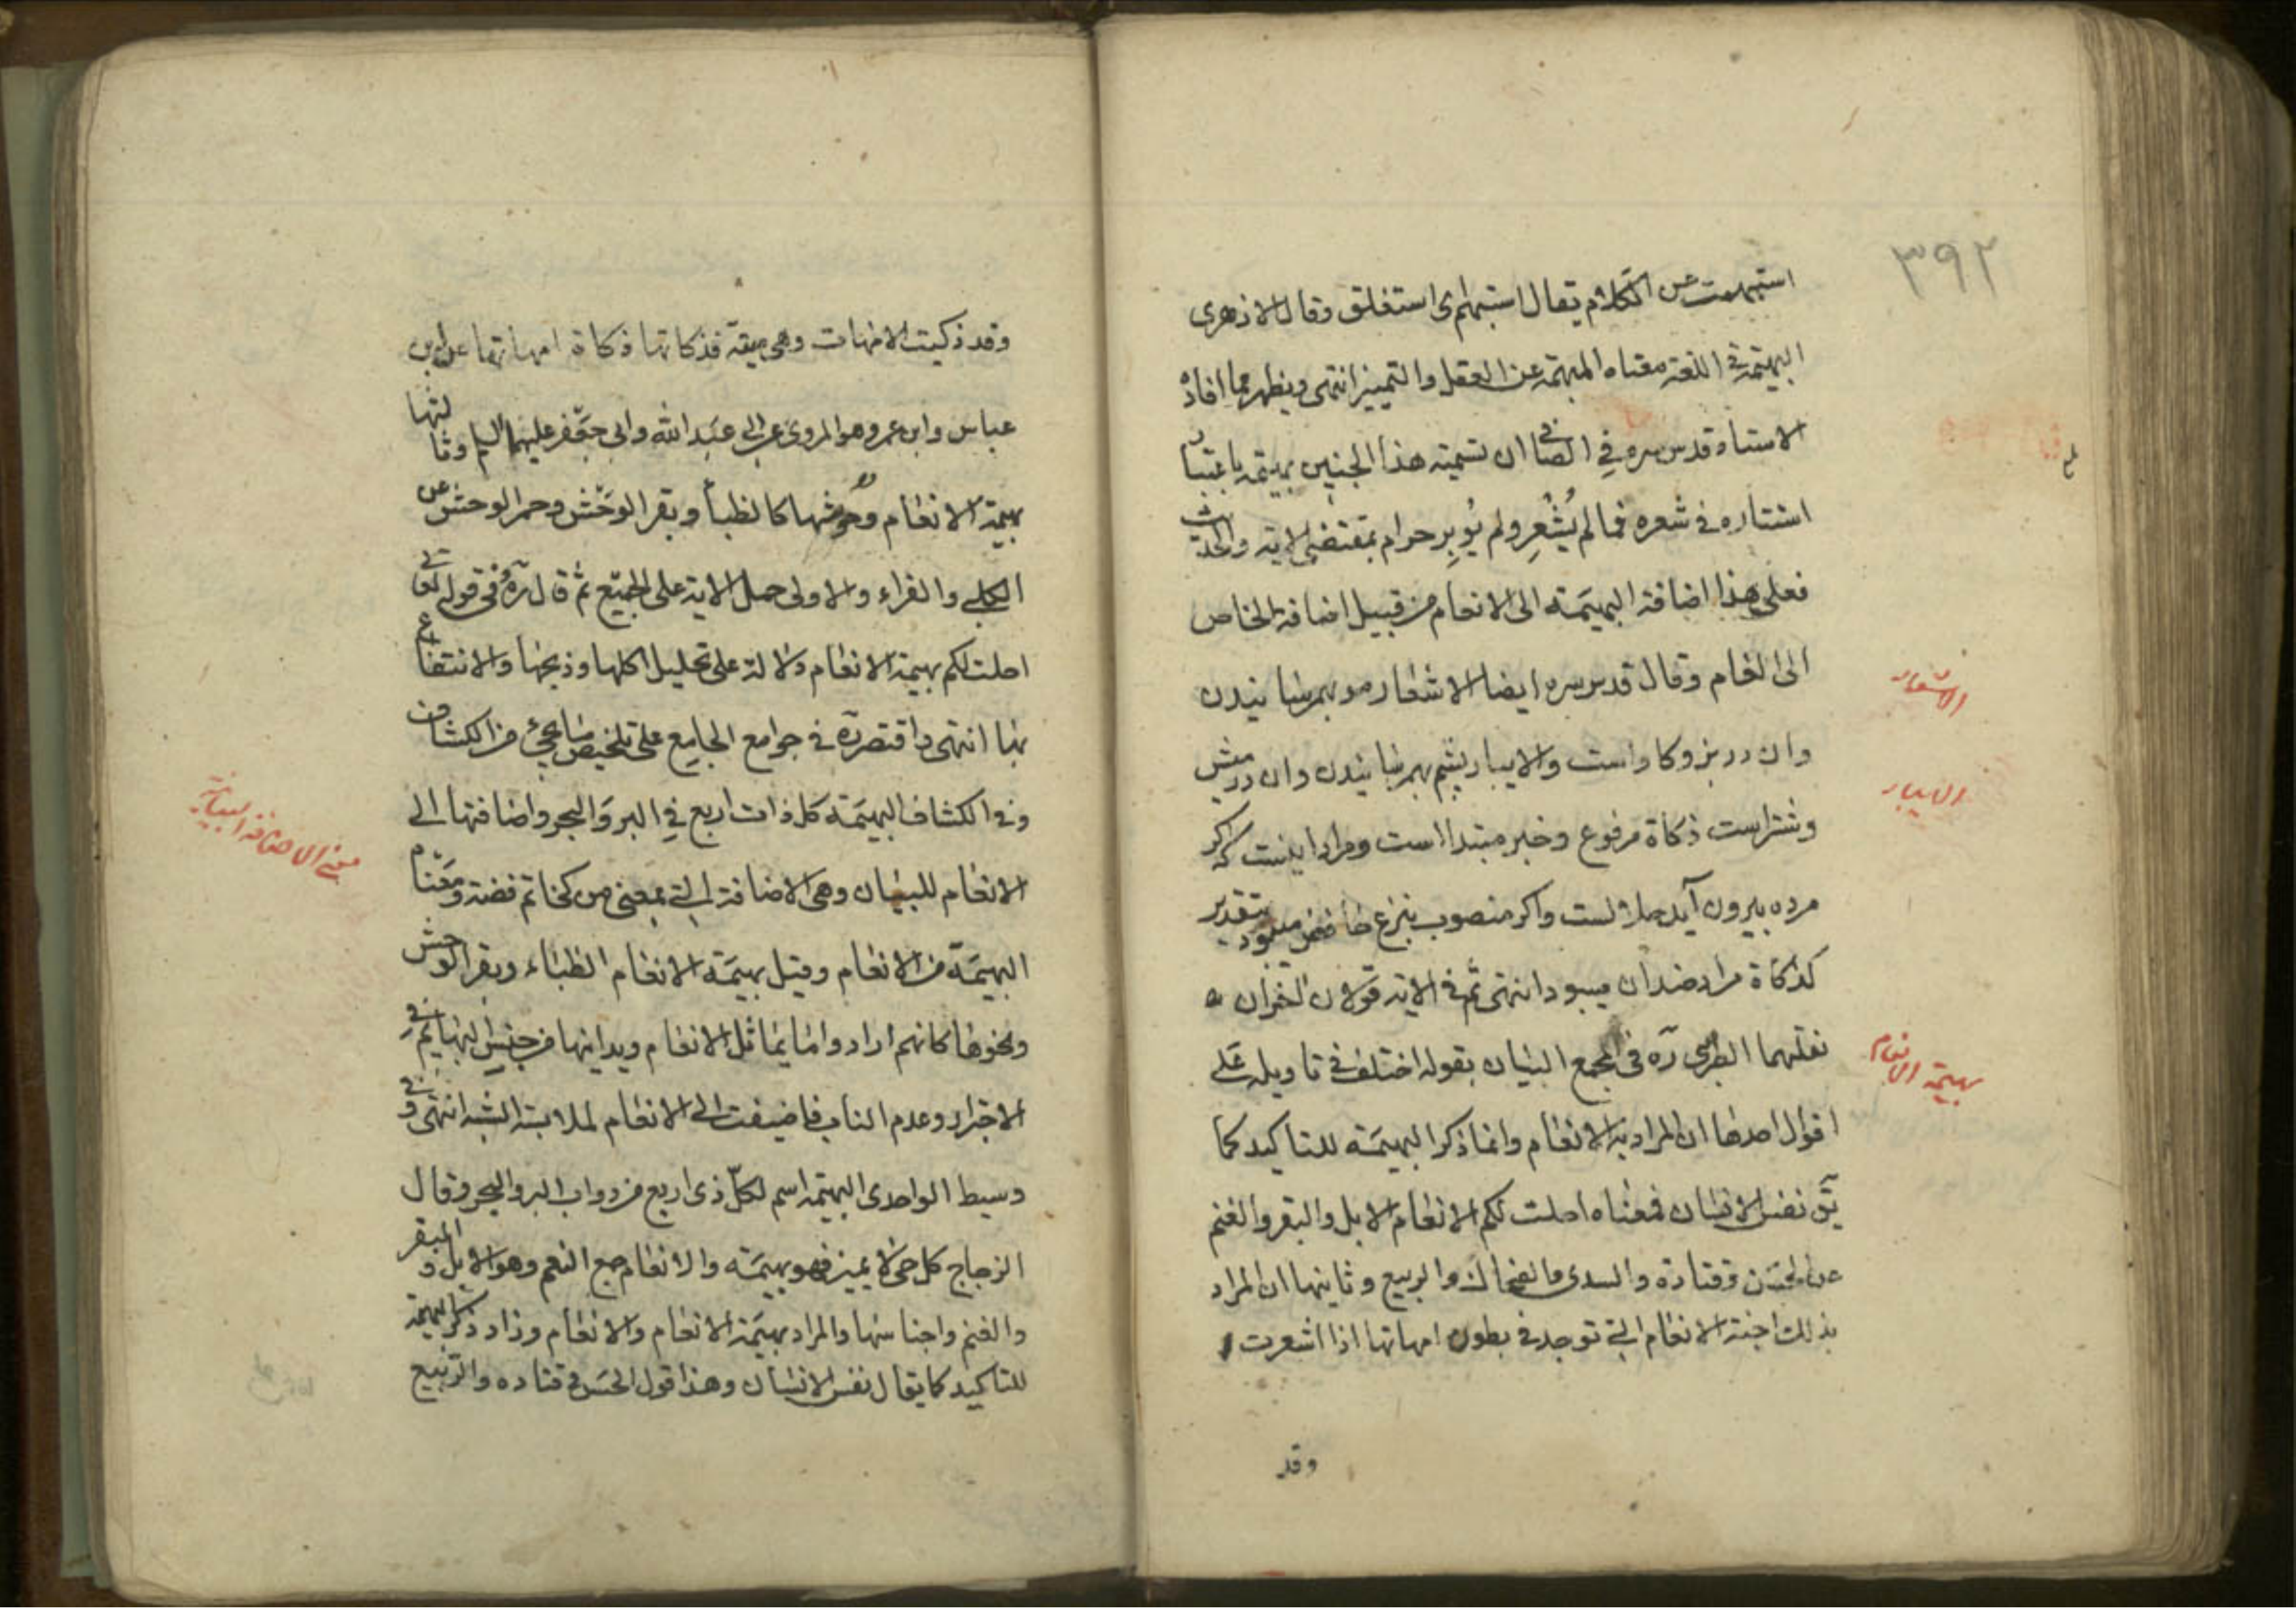 ٣٩٢
استبهمت عن الكلام يقال استبهم اى استغلق وقال الازهرى
البهيمة فى اللغة معناه المبهمة عن العقل والتمييز انتهى ويظهر مما افاده
الاستاد قدس سره فى الصافى ان تسمية هذا الجنين بهيمة باعتبار
استتاره فى شعره فما لم يُشْعِر ولم يُوبِر حرام بمقتضى الاية والحديث
فعلى هذا اضافة البهيمة الى الانعام من قبيل اضافة الخاص
الى العام وقال قدس سره ايضا الاشعار مو بهم رسانيدن
الاشعار
وان در بز وكاو است والايبار پشم بهم رسانيدن وان در ميش
الايبار
وشتر است ذكاة مرفوع وخبر مبتدا است ومراد اينست كه اكر
مرده بيرون آيد حلالست واكر منصوب بنزع خافض ميبود بتقدير
كذكاة مراد ضد آن ميبود انتهى ثم فى الاية قولان اخران
نقلهما الطبرسى ره فى مجمع البيان بقوله اختلف فى تاويله على
بهيمة الانعام
اقوال احدها ان المراد به الانعام وانما ذكر البهيمة للتاكيد كما
يق نفس الانسان فمعناه احلت لكم الانعام الابل والبقر والغنم
عن الحسن وقتادة والسدى والضحاك والربيع وثانيها ان المراد
بذلك اجنة الانعام التى توجد فى بطون امهاتها اذا اشعرت
وقد
وقد ذكيت الامهات وهى ميتة فذكاتها ذكاة امهاتها عن ابن
عباس وابن عمر وهو المروى عن ابى عبد الله وابى جعفر عليهما السلم وثالثها
بهيمة الانعام وحوشها كالظبا وبقر الوحش وحمر الوحش عن
الكلبى والفراء والاولى حمل الاية على الجميع ثم قال ره وفى قوله تعالى
احلت لكم بهيمة الانعام دلالة على تحليل اكلها وذبحها والانتفاع
بها انتهى واقتصر ره فى جوامع الجامع على تلخيص ما يجئ من الكشاف
وفى الكشاف البهيمة كل ذات اربع فى البر والبحر واضافتها الى
معنى الاضافة البيانية
الانعام للبيان وهى الاضافة التى بمعنى من كخاتم فضة ومعناه
البهيمة من الانعام وقيل بهيمة الانعام الظباء وبقر الوحش
ونحوها كانهم ارادوا ما يماثل الانعام ويدانيها من جنس البهايم فى
الاجترار وعدم الناب فاضيفت الى الانعام لملابسة الشبه انتهى وفى
وسيط الواحدى البهيمة اسم لكل ذى اربع من دواب البر والبحر وقال
الزجاج كل حى لا يميز فهو بهيمة والانعام جمع النعم وهو الابل والبقر
والغنم واجناسها والمراد بهيمة الانعام والانعام وزاد ذكر البهيمة
للتاكيد كما يقال نفس الانسان وهذا قول الحسن وقتاده والربيع